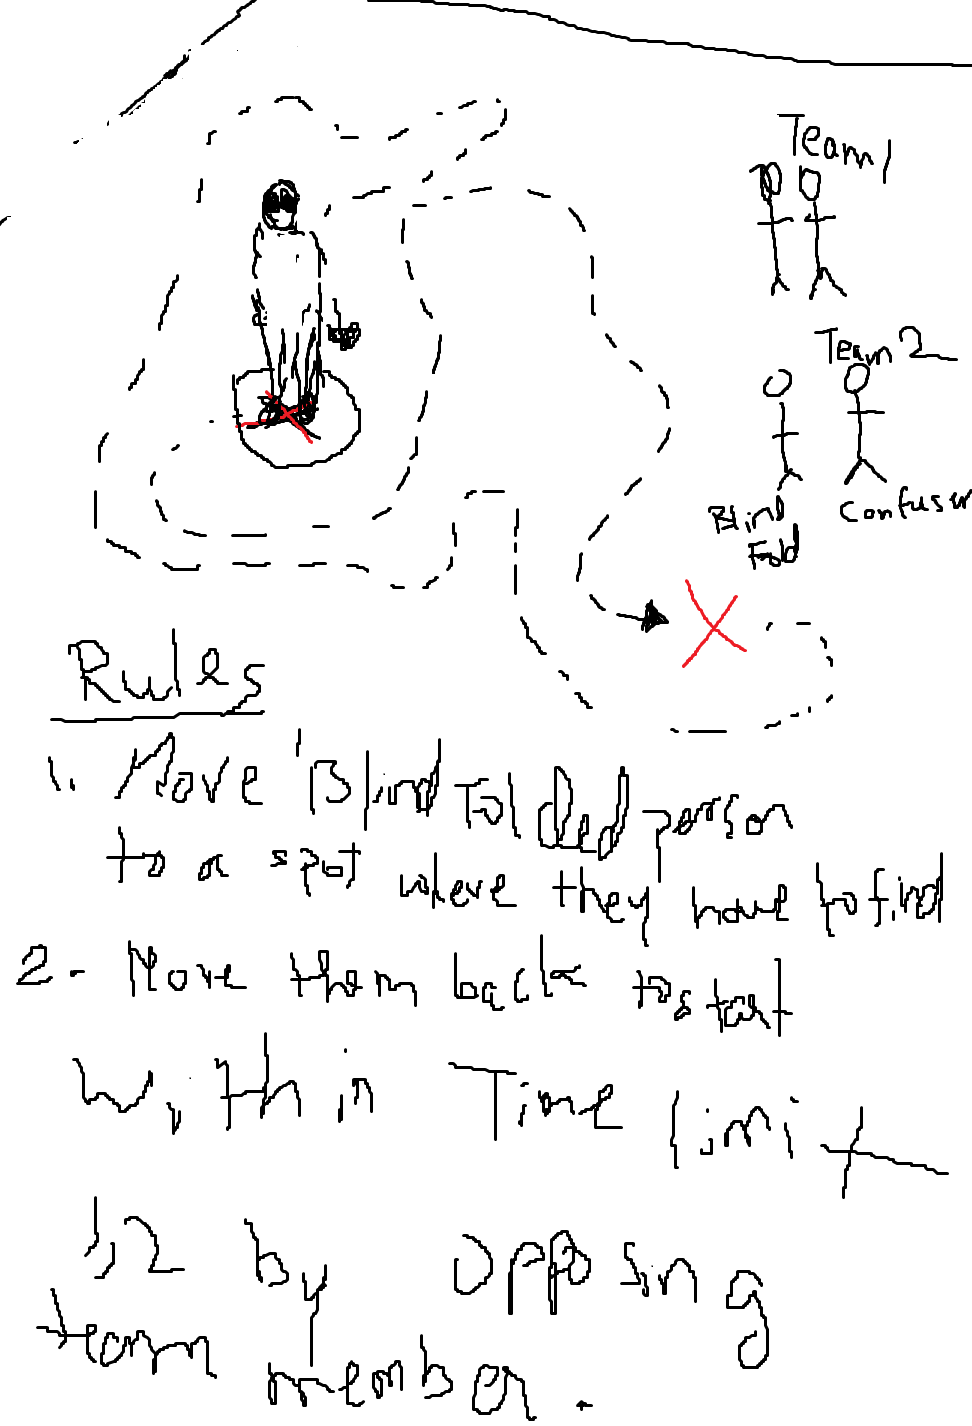 Team 1
Team 2
Blind
Fold
Confuser
Rules
1. Move Blind Folded person
to a spot where they have to find
2- Move them back to start
Within Time limit
1,2 by opposing
team member.